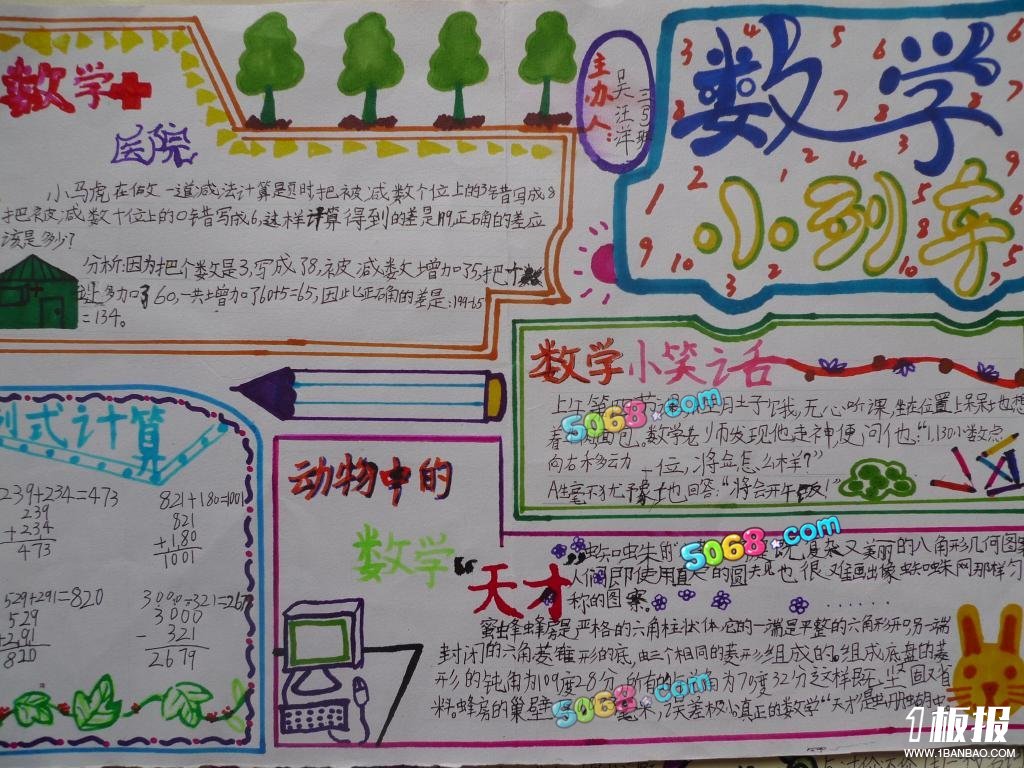 数学
医院
小马虎在做一道减法计算题时把被减数个位上的3错写成8
把被减数十位上的0错写成6,这样计算得到的差是199,正确的差应
该是多少?
分析:因为把个数是3,写成了8,被减数增加了5,把十
多加了60,一共增加了60+5=65,因此正确的差是:199-65
=134。
主办人:
吴汪洋
三5班
数学
小列车
3 4 5 6 6
数学小笑话
无心听课,坐在位置上呆呆地想
着 面包。数学老师发现他走神,便问他:“1.130小数点
向右移动一位,将会怎么样?”
A生毫不犹豫地回答:“将会开午饭!”
列式计算
239+234=473
239
+234
473
821+180=1001
821
+180
1001
529+291=820
529
+291
820
3000-321=2679
3000
- 321
2679
动物中的
数学“天才”
蜘蛛 既 复杂又美丽的八角形几何图案
人们即使用直尺的圆规也很难画出像蜘蛛网那样匀
称的图案。
蜜蜂蜂房是严格的六角柱状体,它的一端是平整的六角形开口,另一端
封闭的六角菱锥形的底,由三个相同的菱形组成的。组成底盘的菱
形的钝角为109度28分,所有的 角为70度32分这样既坚固又省
料。蜂房的巢壁 毫米,误差极小。真正的数学“天才”是
5068.com
5068.com
5068.com
1板报
WWW.1BANBAO.COM